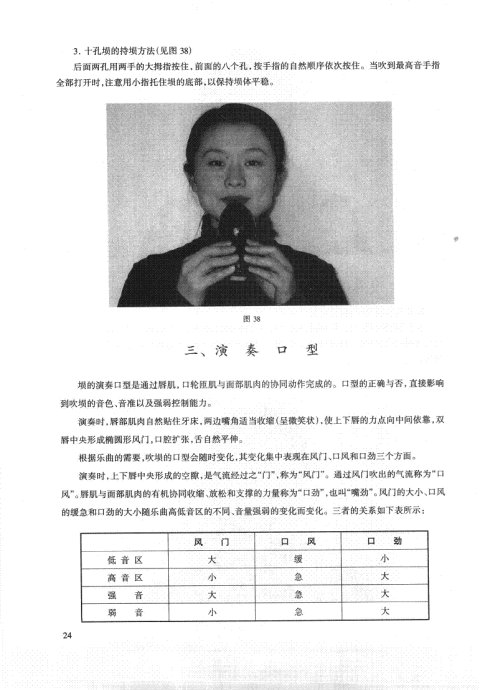 3. 十孔埙的持埙方法(见图 38)
后面两孔用两手的大拇指按住,前面的八个孔,按手指的自然顺序依次按住。当吹到最高音手指
全部打开时,注意用小指托住埙的底部,以保持埙体平稳。
图 38
三、演 奏 口 型
埙的演奏口型是通过唇肌,口轮匝肌与面部肌肉的协同动作完成的。口型的正确与否,直接影响
到吹埙的音色、音准以及强弱控制能力。
演奏时,唇部肌肉自然贴住牙床,两边嘴角适当收缩(呈微笑状),使上下唇的力点向中间依靠,双
唇中央形成椭圆形风门,口腔扩张,舌自然平伸。
根据乐曲的需要,吹埙的口型会随时变化,其变化集中表现在风门、口风和口劲三个方面。
演奏时,上下唇中央形成的空隙,是气流经过之“门”,称为“风门”。通过风门吹出的气流称为“口
风”。唇肌与面部肌肉的有机协同收缩、放松和支撑的力量称为“口劲”,也叫“嘴劲”。风门的大小、口风
的缓急和口劲的大小随乐曲高低音区的不同、音量强弱的变化而变化。三者的关系如下表所示:
风 门 口 风 口 劲
低 音 区 大 缓 小
高 音 区 小 急 大
强 音 大 急 大
弱 音 小 急 大
24